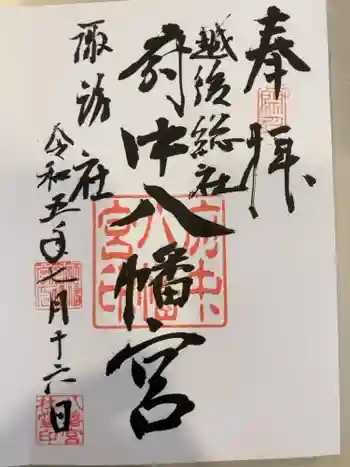 奉拝
越後総社
府中八幡宮
諏訪社
令和五年七月十六日
府中八幡宮印